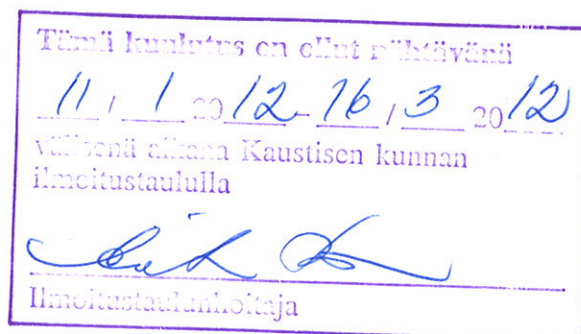 Tämä kuulutus on ollut nähtävänä
11 / 1 2012 - 16 / 3 2012
välisenä aikana Kaustisen kunnan
ilmoitustaululla
Ilmoitustaulunhoitaja